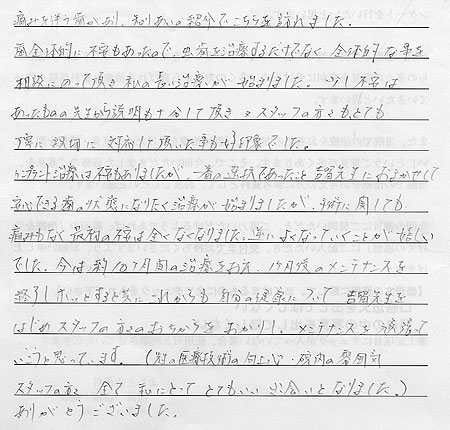 痛みを伴う歯があり、知りあいの紹介でこちらを訪れました。
歯全体的に不安もあったので、虫歯を治療するだけでなく全体的な事を
相談にのって頂き 私の長い治療が始まりました。少し不安は
あったものの先生から説明も十分して頂き、スタッフの方々もとても
丁寧に親切に対応して頂いた事も好印象でした。
インプラント治療は不安もありましたが、一番の選択であったこと 吉留先生におまかせして
安心できる歯の状態になりたく治療が始まりましたが、手術に関しても
痛みもなく最初の不安は全くなくなりました。逆によくなっていくことが嬉しい
でした。今は約10ヶ月間の治療をおえ 1ヶ月後のメンテナンスを
終了しホッとすると共に これからも自分の健康について 吉留先生を
はじめ スタッフの方々のお力をおかりし、メンテナンスも頑張って
いこうと思っています。(先生の医療技術の向上心・院内の雰囲気
スタッフの方々 全て 私にとって とてもいい出会いとなりました。)
ありがとうございました。